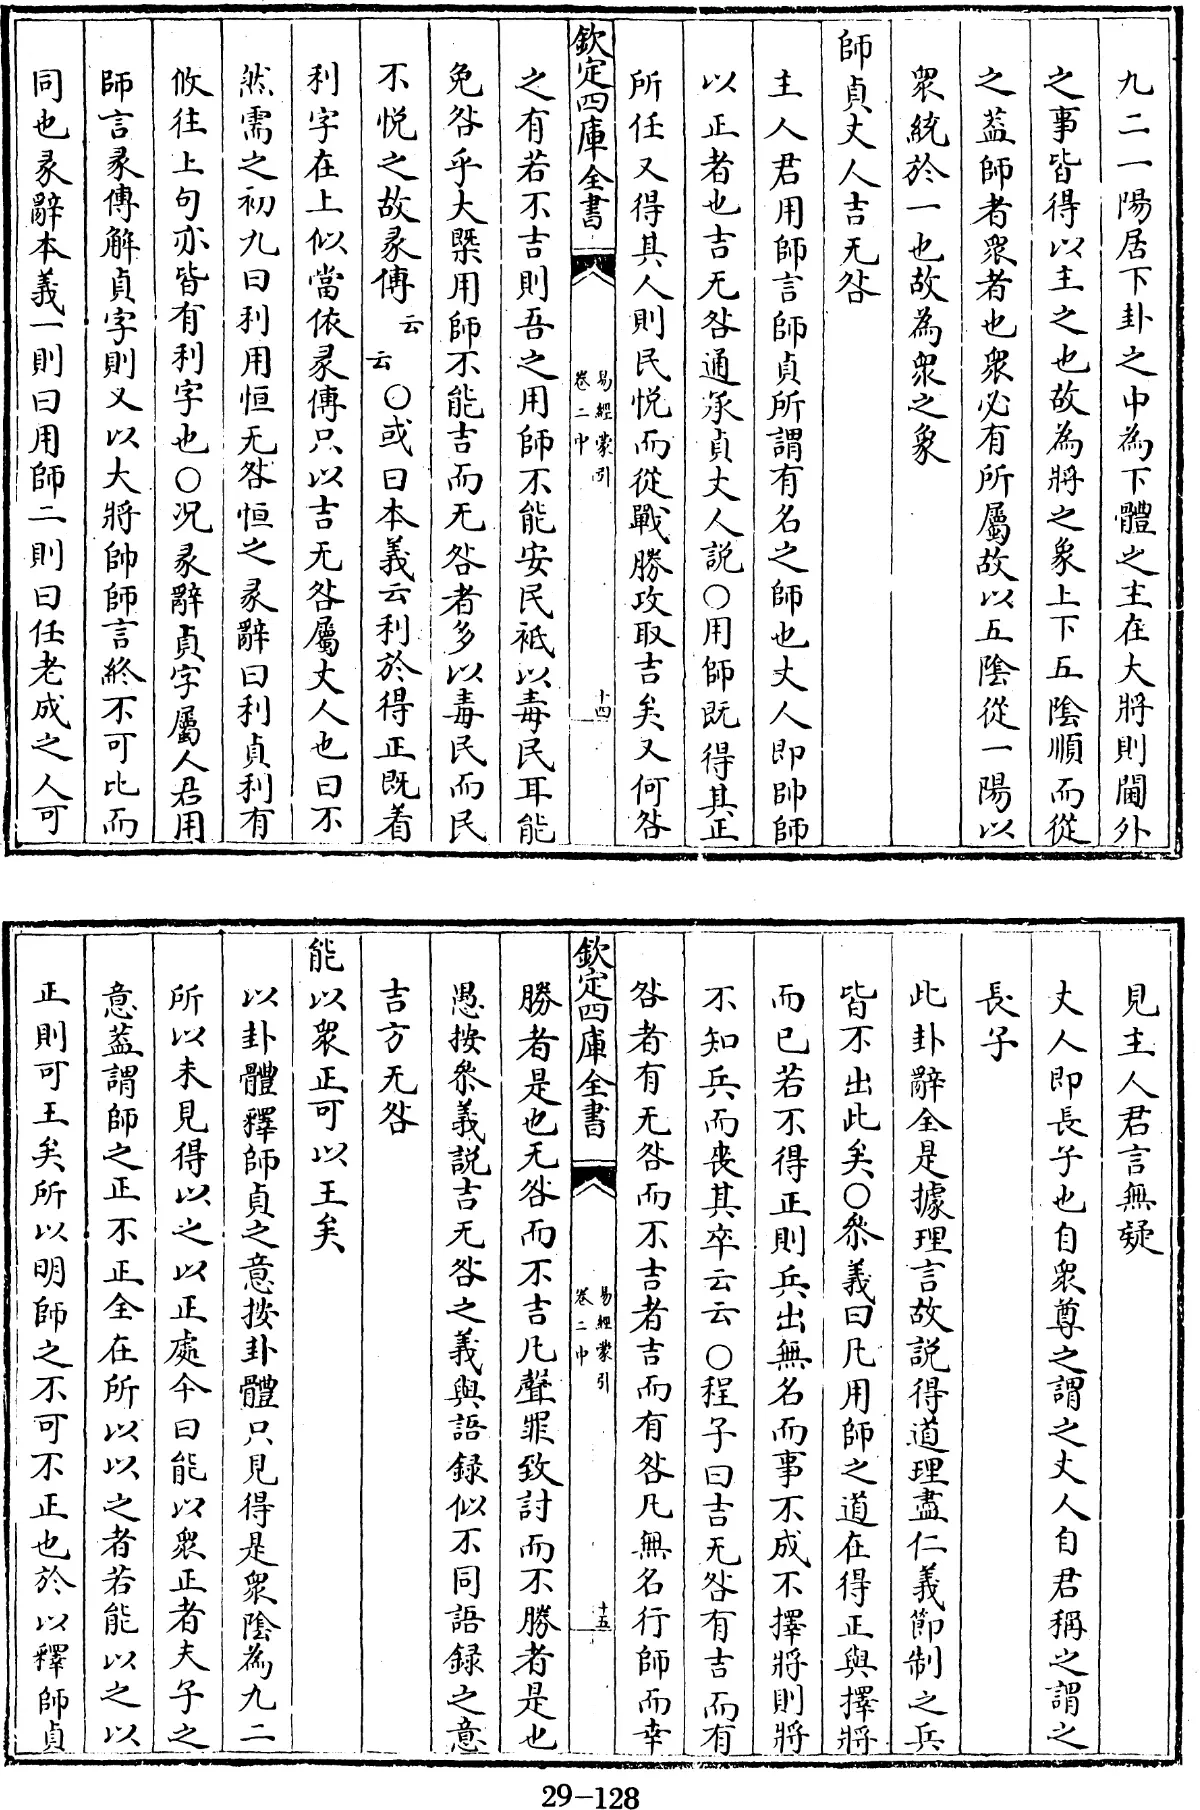 九二一陽居下卦之中為下體之主在大將則閫外
之事皆得以主之也故為將之象上下五陰順而從
之蓋師者衆者也衆必有所屬故以五陰從一陽以
衆統於一也故為衆之象
師貞丈人吉无咎
主人君用師言師貞所謂有名之師也丈人即帥師
以正者也吉无咎通承貞丈人説○用師既得其正
所任又得其人則民悦而從戰勝攻取吉矣又何咎
欽定四庫全書
易經蒙引
卷二中
十四
之有若不吉則吾之用師不能安民祗以毒民耳能
免咎乎大槩用師不能吉而无咎者多以毒民而民
不悦之故彖傳云云○或曰本義云利於得正既着
利字在上似當依彖傳只以吉无咎屬丈人也曰不
然需之初九曰利用恒无咎恒之彖辭曰利貞利有
攸往上句亦皆有利字也○况彖辭貞字屬人君用
師言彖傳解貞字則又以大將帥師言終不可比而
同也彖辭本義一則曰用師二則曰任老成之人可
見主人君言無疑
丈人即長子也自衆尊之謂之丈人自君稱之謂之
長子
此卦辭全是據理言故説得道理盡仁義節制之兵
皆不出此矣○叅義曰凡用師之道在得正與擇將
而已若不得正則兵出無名而事不成不擇將則將
不知兵而喪其卒云云○程子曰吉无咎有吉而有
咎者有无咎而不吉者吉而有咎凡無名行師而幸
欽定四庫全書
易經蒙引
卷二中
十五
勝者是也无咎而不吉凡聲罪致討而不勝者是也
愚按叅義説吉无咎之義與語録似不同語録之意
吉方无咎
能以衆正可以王矣
以卦體釋師貞之意按卦體只見得是衆陰為九二
所以未見得以之以正處今曰能以衆正者夫子之
意蓋謂師之正不正全在所以以之者若能以之以
正則可王矣所以明師之不可不正也於以釋師貞
29-128